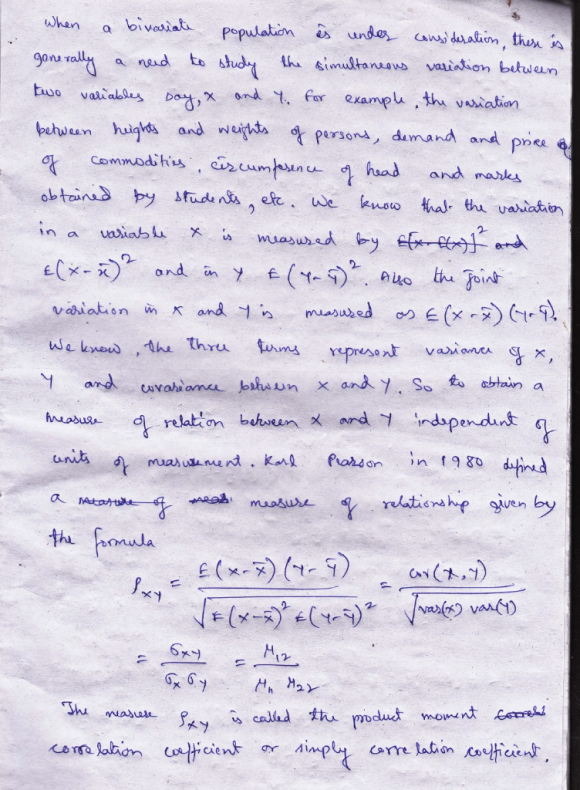 When a bivariate population is under consideration, there is
generally a need to study the simultaneous variation between
two variables say, X and Y. For example, the variation
between heights and weights of persons, demand and price
of commodities, circumference of head and marks
obtained by students, etc. We know that the variation
in a variable X is measured by E[X-E(X)]² and
E(X-x̄)² and in Y E(Y-ȳ)². Also the joint
variation in X and Y is measured as E(X-x̄)(Y-ȳ).
We know, the three terms represent variance of X,
Y and covariance between X and Y. So to obtain a
measure of relation between X and Y independent of
units of measurement. Karl Pearson in 1980 defined
a measure of meas measure of relationship given by
the formula
ρxy = E(X-x̄)(Y-ȳ) / √E(X-x̄)² E(Y-ȳ)² = cov(X,Y) / √var(X) var(Y)
= σxy / σx σy = μ12 / μ11 μ22
The measure ρxy is called the product moment correl
correlation coefficient or simply correlation coefficient.